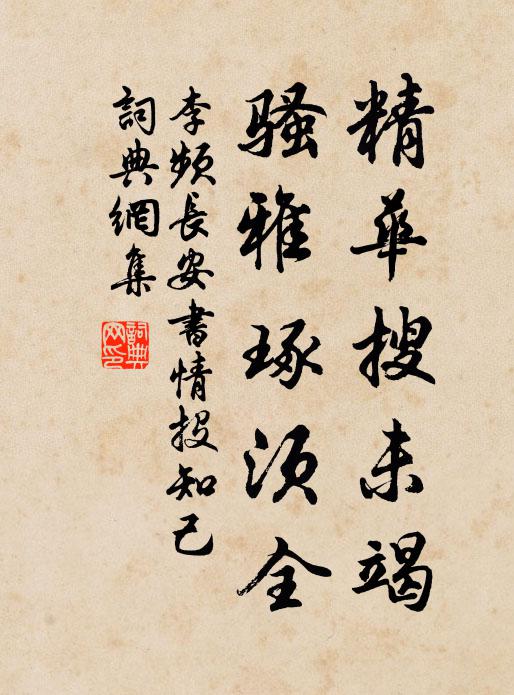 精華搜未竭
騷雅琢須全
李頻長安書情投知己
詞典網集
詞典網印